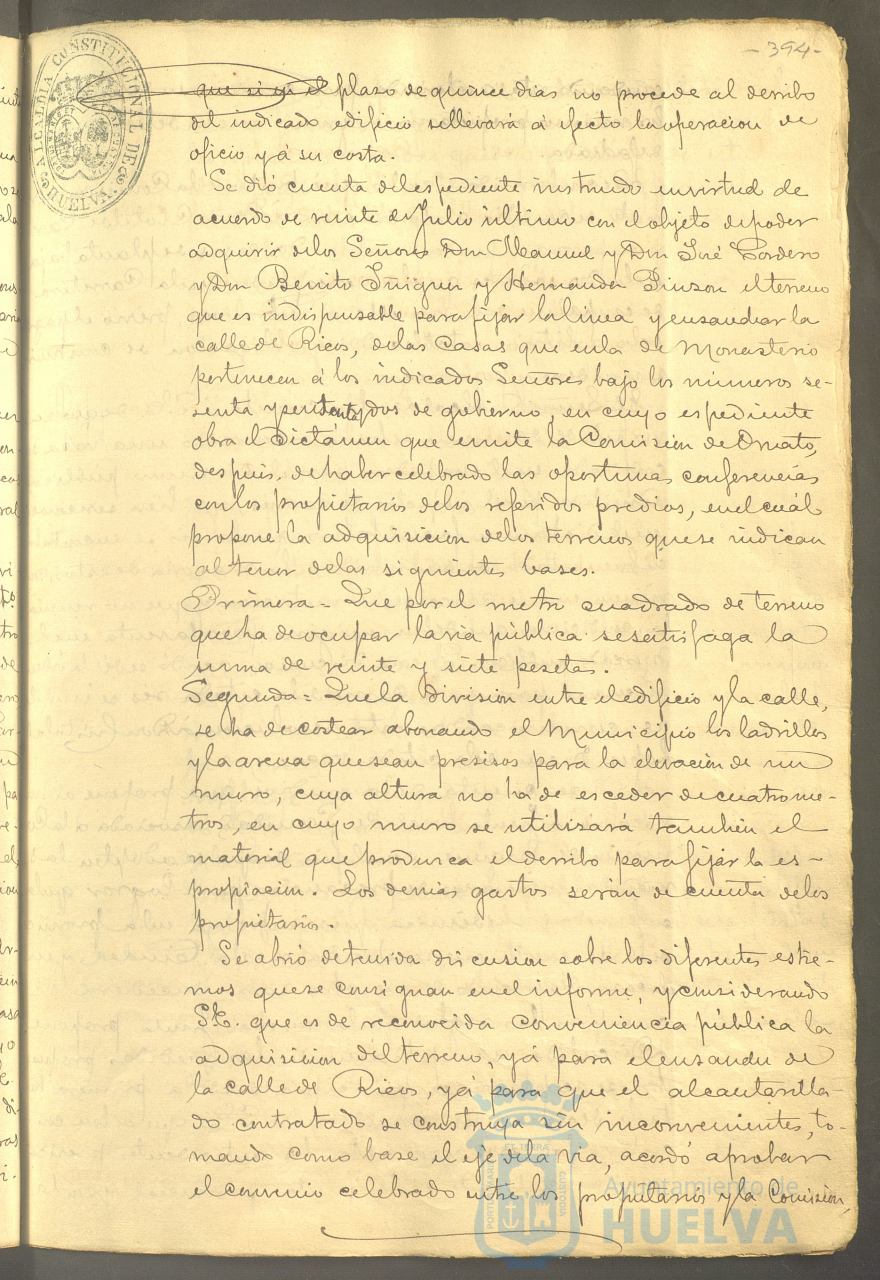 -394-
ALCALDIA CONSTITUCIONAL DE HUELVA.
que si en el plaso de quince dias no procede al derribo
del indicado edificio se llevará á efecto la operacion de
oficio y á su costa.
Se dió cuenta del espediente instruido en virtud de
acuerdo de veinte de Julio último con el objeto de poder
adquirir de los Señores Don Manuel y Don José Cordero
y Don Benito Iñiguez y Hernandez Pinzon el terreno
que es indispensable para fijar la linea y ensanchar la
calle de Ricos, de las Casas que en la de Monasterio
pertenecen á los indicados Señores bajo los números se-
senta y sesenta y dos de gobierno, en cuyo espediente
obra el Dictámen que emite la Comisión de Ornato,
despues de haber celebrado las oportunas conferencias
con los propietarios de los referidos predios, en el cuál
propone la adquisicion de los terrenos que se indican
al tenor de las siguientes bases.
Primera = Que por el metro cuadrado de terreno
que ha de ocupar la via pública se satisfaga la
suma de veinte y siete pesetas.
Segunda = Que la division entre el edificio y la calle,
se ha de costear abonando el Municipio los ladrillos
y la arena que sean presisos para la elevacion de un
muro, cuya altura no ha de esceder de cuatro me-
tros, en cuyo muro se utilizará tambien el
material que produzca el derribo para fijar la es-
propiacion. Los demas gastos serán de cuenta de los
propietarios.
Se abrió detenida discusion sobre los diferentes estre-
mos que se consignan en el informe, y considerando
S.E. que es de reconocida conveniencia pública la
adquisicion del terreno, yá para el ensanche de
la calle de Ricos, yá para que el alcantarilla-
do contratado se construya sin inconvenientes, to-
mando como base el eje de la via, acordó aprobar
el convenio celebrado entre los propietarios y la Comision,
Ayuntamiento de
HUELVA